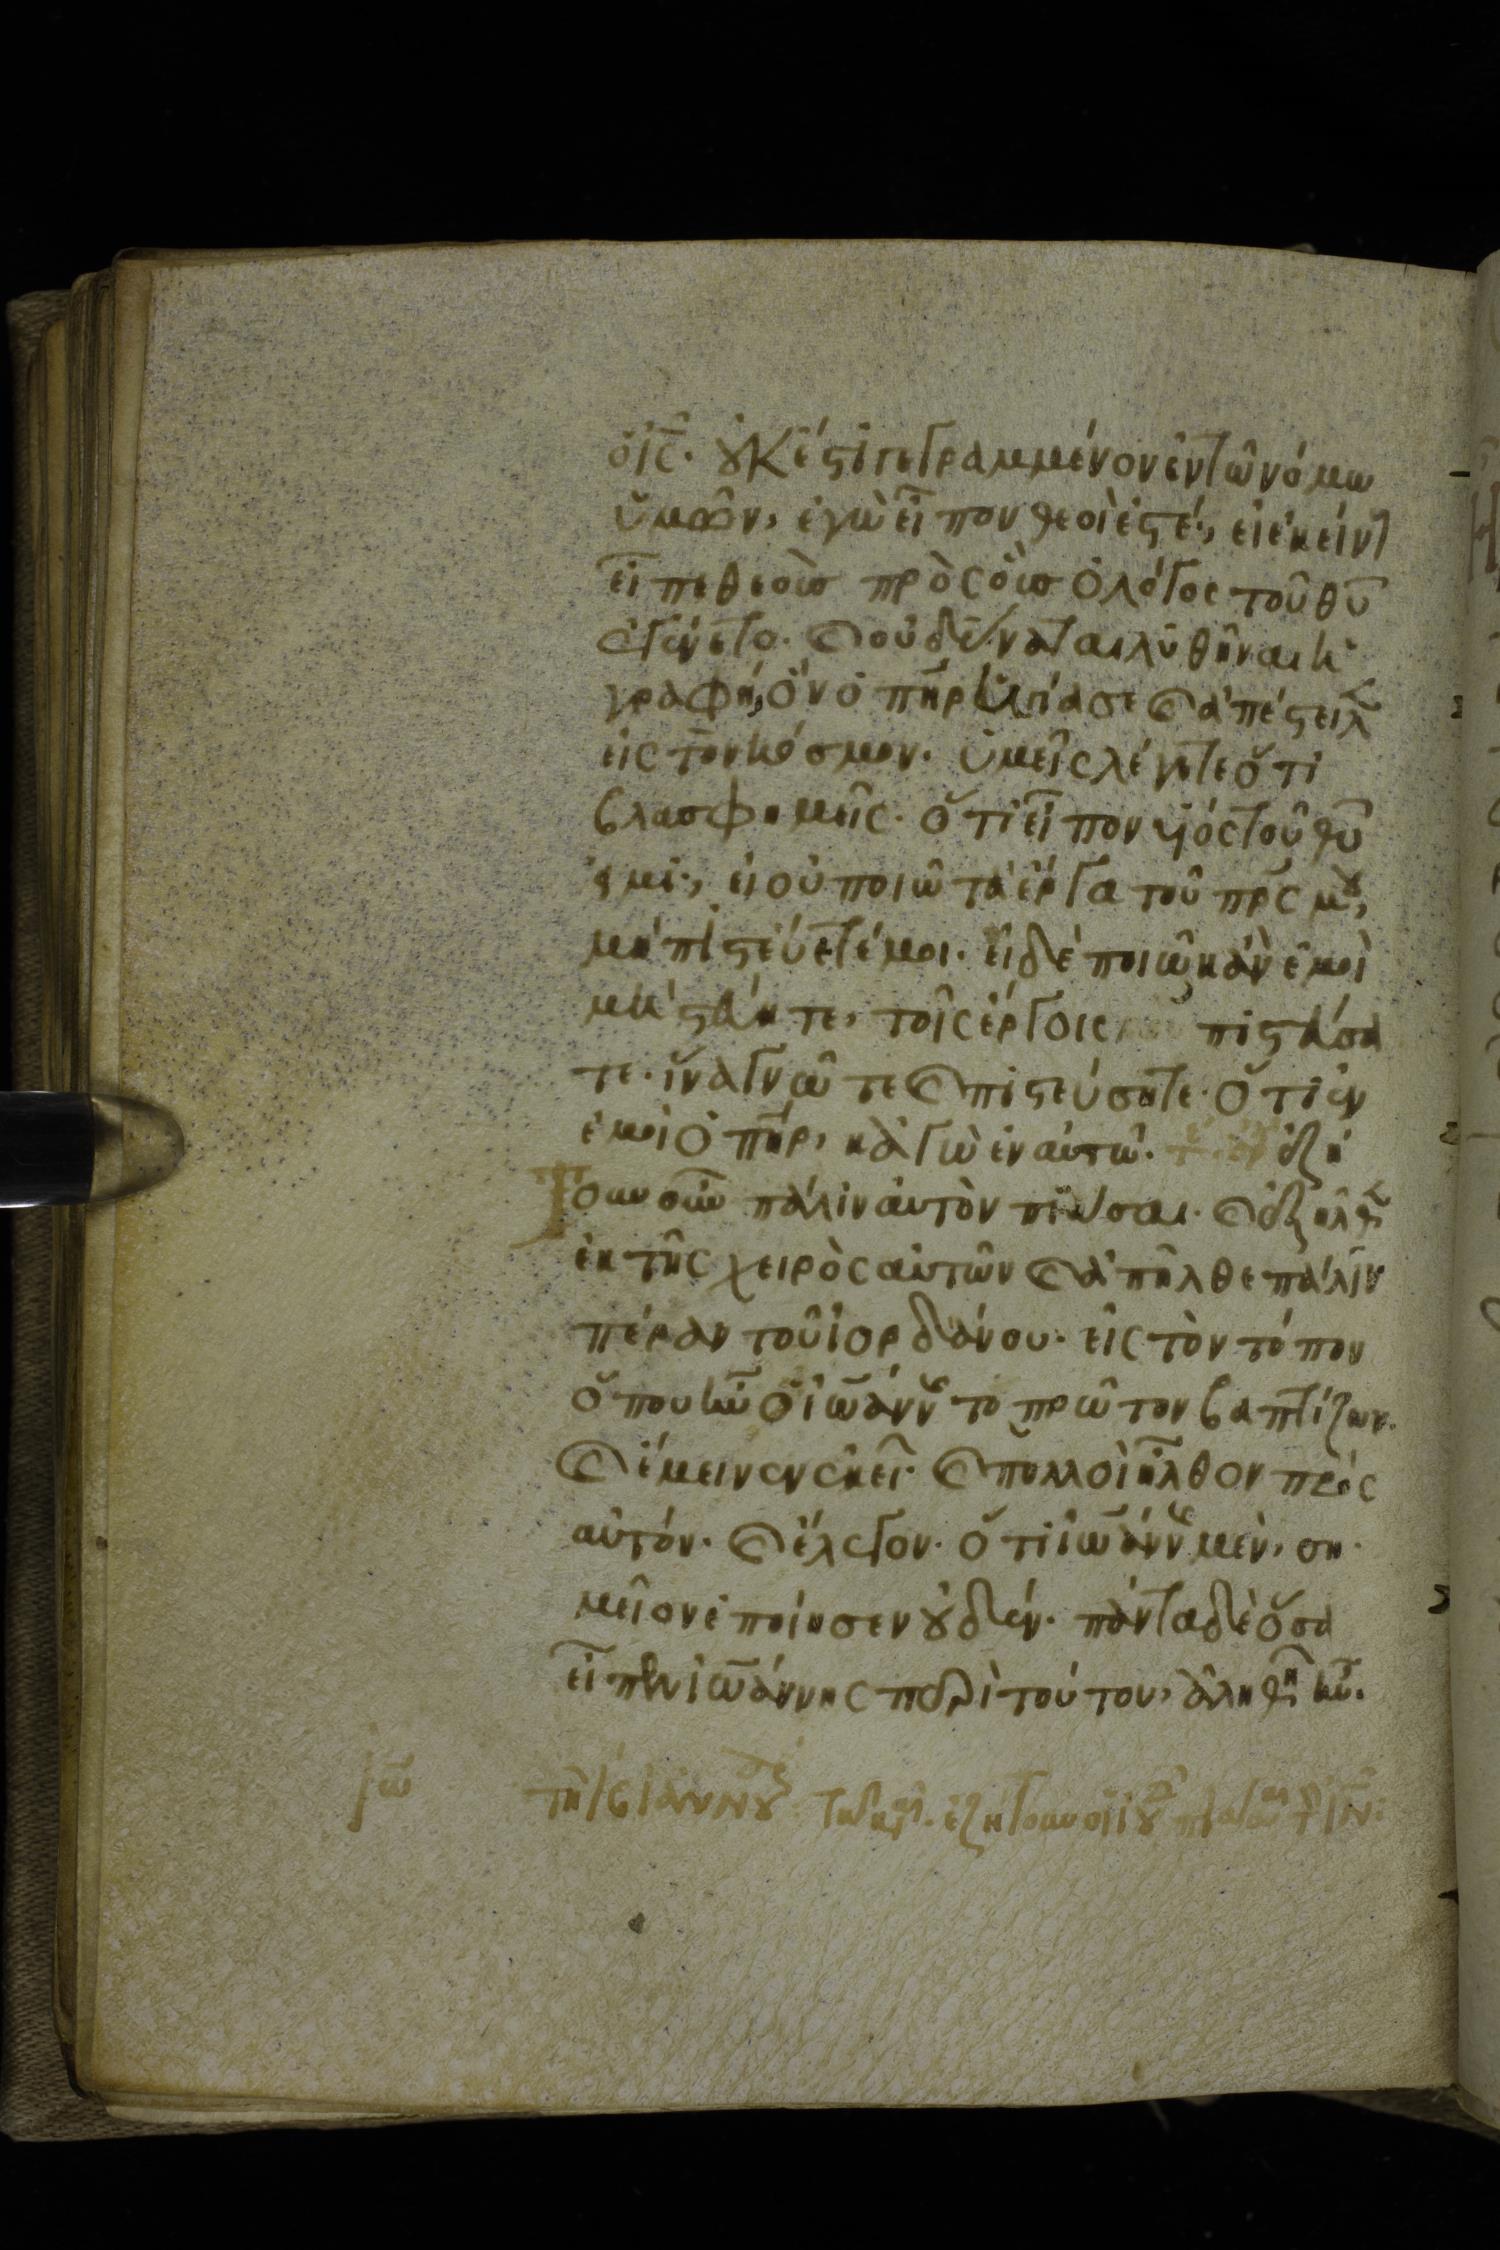 ὁ ις̅. οὐκ ἔστι γεγραμμένον ἐν τῷ νόμω
ὑμῶν, ἐγὼ εἶπον θεοί ἐστέ, εἰ ἐκείν
εἶπε θεοὺς πρὸς οὓς ὁ λόγος τοῦ θυ̅
ἐγένετο. καὶ οὐ δύναται λυθῆναι ἡ
γραφή, ὃν ὁ πηρ̅ ἡγίασε καὶ ἀπέστειλ
εἰς τὸν κόσμον. ὑμεῖς λέγετε ὅτι
βλασφημεῖς. ὅτι εἶπον υἱός τοῦ θυ̅
εἰμί, εἰ οὐ ποιῶ τὰ ἔργα τοῦ πρς̅ μου,
μὴ πιστεύετέ μοι. εἰ δὲ ποιῶ κἂν ἐμοὶ
μὴ πιστεύητε, τοῖς ἔργοις πιστεύσα
τε. ἵνα γνῶτε καὶ πιστεύσητε. ὅτι ἐν
ἐμοὶ ὁ πηρ̅, κἀγὼ ἐν αὐτῷ. ἐζή
Τουν οὖν πάλιν αὐτὸν πιάσαι. καὶ ἐξῆλθ
ἐκ τῆς χειρὸς αὐτῶν καὶ ἀπῆλθε πάλιν
πέραν τοῦ ἰορδάνου. εἰς τὸν τόπον
ὅπου ἦν ὁ ἰωάνν τὸ πρῶτον βαπτίζων.
καὶ ἔμεινεν ἐκεῖ. καὶ πολλοὶ ἦλθον πρὸς
αὐτόν. καὶ ἔλεγον. ὅτι ἰωάνν μὲν, ση
μεῖον ἐποίησεν οὐδέν. πάντα δὲ ὅσα
εἶπεν ἰωάννης περὶ τούτου, ἀληθῆ ἦν.